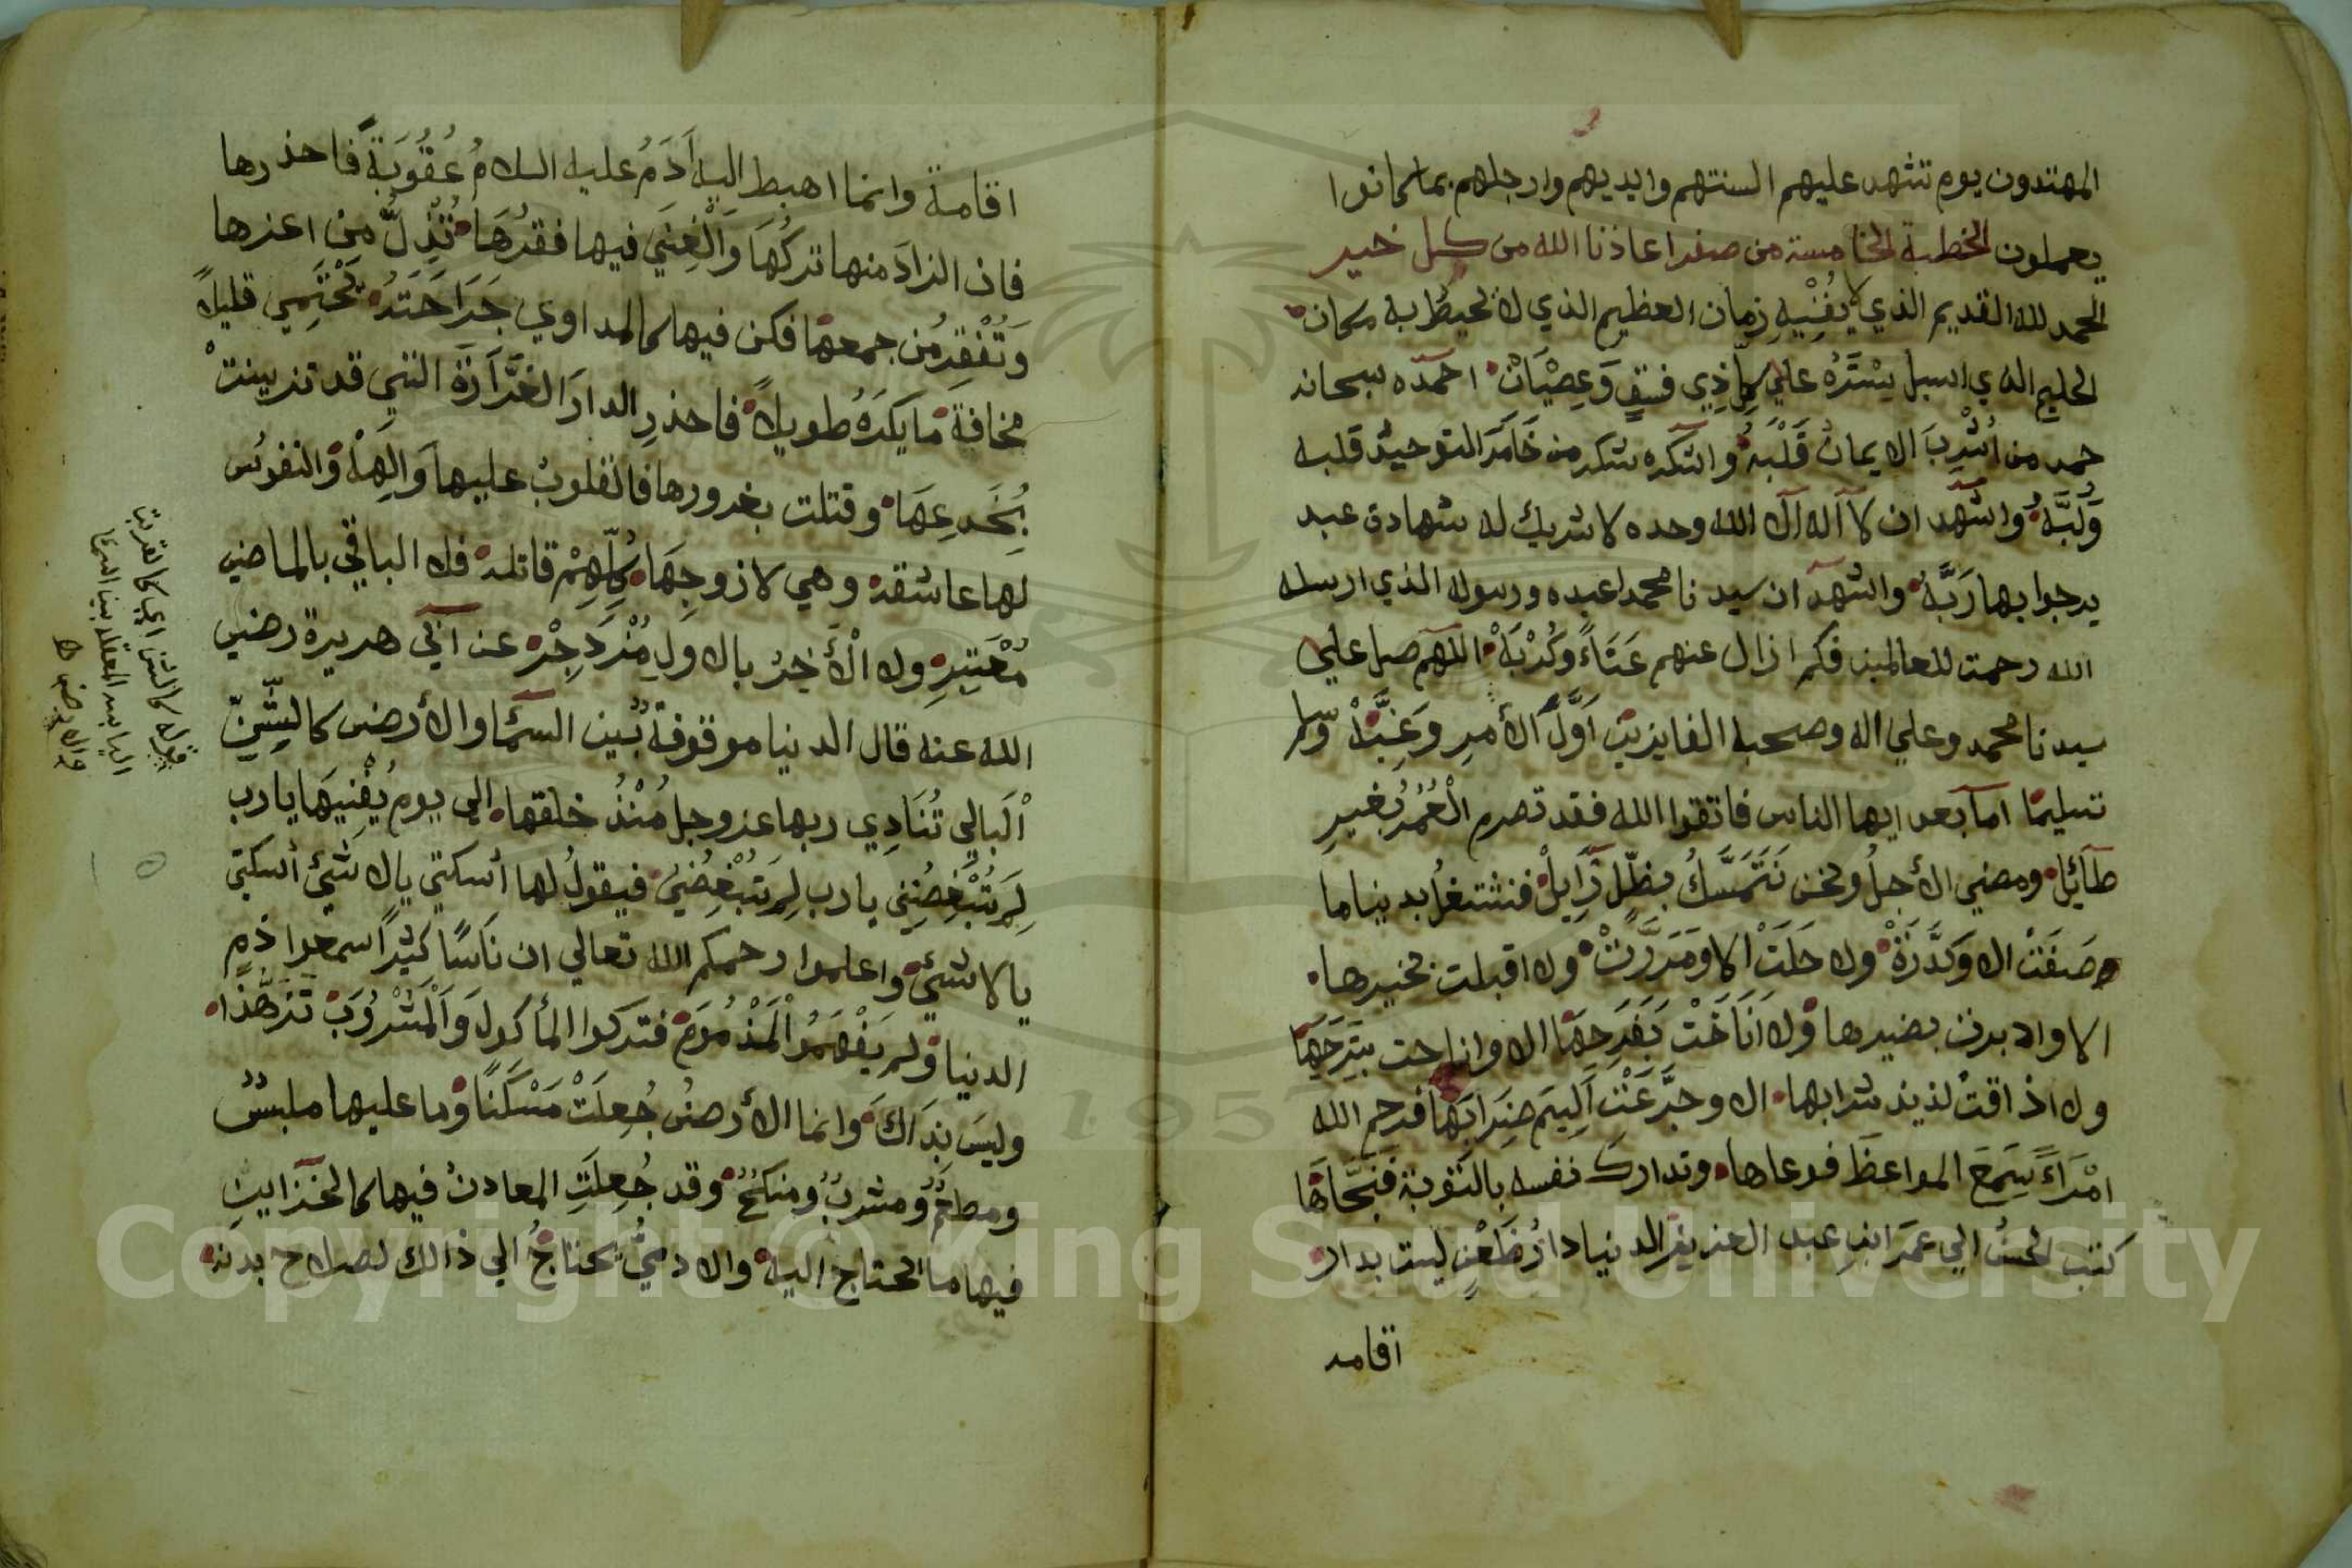 المهتدون يوم تشهد عليهم السنتهم وايديهم وارجلهم بما كانوا
يعملون الخطبة الخامسة من صفر اعاذنا الله من كل خير
الحمد لله القديم الذي لا يُفْنِيهِ زمان العظيم الذي لا يحيطُ به مكان
الحليم الذي اسبل سِتْرَهُ علي كلِّ ذِي فسقٍ وَعِصْيَانْ احمده سبحانه
حمد من اُشْرِبَ الايمانُ قَلْبَهُ واشكره شكر من خَامَرَ التوحيدُ قلبه
وَلُبَّهُ واشهد ان لا اله الا الله وحده لا شريك له شهادة عبد
يرجوا بها رَبَّهُ واشهد ان سيدنا محمدا عبده ورسوله الذي ارسله
الله رحمت للعالمين فكم ازال عنهم عَنَاءً وَكُرْبَةْ اللهم صل علي
سيدنا محمد وعلي اله وصحبه الفايزين اَوَّلَ الأمرِ وَغِبَّهْ وسلم
تسليما اما بعد ايها الناس فاتقوا الله فقد تصرم الْعُمْرُ بغيرِ
طَآئِلْ ومضي الأجلُ ونحن نَتَمَسَّكُ بظلٍّ زَايِلْ فنشتغلُ بدنيا ما
صَفَتْ الا وَكَدَّرَتْ ولا حَلَتْ الا وَمَرَّرَتْ ولا اقبلت بخيرها
الا وادبرت بضيرها ولا اَنَاخَتْ بَفَرَحِهَا الا واناحت بِتَرَحِهَا
ولا اذاقت لذيذ شرابها الا وجَرَّعَتْ اَلِيمَ ضِرَابَهَا فرحم الله
امْرَاءً سَمِعَ المواعظَ فوعاها وتدارك نفسه بالتوبة فَنَجَّاهَا
كتب الحسنُ الي عمرَ ابنِ عبد العزيز الدنيا دارُ ظَعْنٍ ليست بدار
اقامة
اقامة وانما اهبط اليه اَدَمُ عليه السلامُ عُقُوبَةً فاحذرها
فان الزادَ منها تركُهَا وَالْغِنَي فيها فقرُهَا تُذِلُّ من اعزها
وَتُفْقِرُ من جمعها فكن فيها كالمداوي جَرَاحَتَهُ يَحْتَمِي قليلاً
مخافةَ مَا يَكرَهُ طويلاً فاحذرِ الدارَ الغَرَّارَةَ التي قد تزينتْ
بُخَدِعِهَا وقتلت بغرورها فالقلوبُ عليها وَالِهةْ والنفوسُ
لها عاشقة وهي لازوجِهَا كُلِّهِمْ قاتلة فلا الباقي بالماضي
مُعْتَبِرِ ولا الأخِرُ بالاولِ مُزْدَجِرْ عن ابي هريرة رضي
الله عنه قال الدنيا موقوفةٌ بين السما والأرض كالشَّنِّ
اَلْبَالِي تُنَادِي ربها عز وجل مُنْذُ خلقها الي يوم يُفْنِيهَا يا رب
لِمَ تُبْغِضُنِي يا رب لِمَ تُبْغِضُنِي فيقولُ لها اُسكتي يا لا شئ اُسكتي
يا لا شئ واعلموا رحمكم الله تعالي ان نَاسًا كثيرًا سمعوا ذم
الدنيا ولم يَفْهَمُوا الْمَذْمُومَ فتركوا المأكولَ وَالْمَشْرُوبَ تَزَهُّدًا
وليسَ بِذَاكَ وانما الأرضُ جُعِلَتْ مَسْكَنًا وما عليها ملبسٌ
ومطعمٌ ومشربٌ ومنكحٌ وقد جُعِلَتِ المعادنُ فيها كالخزاينِ
فيها ما يحتاج اليه والادميُّ يحتاجُ الي ذالك لصلاح بدنه
قوله كالشن اي كالقربة
اليابسه المعلقه بين السما
والارض